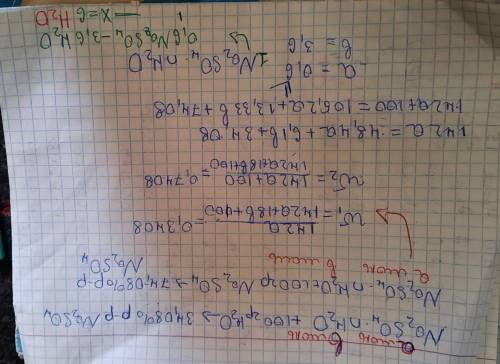 а моль в моль
Na₂SO₄·nH₂O + 100г H₂O → 34,08% р-р Na₂SO₄
Na₂SO₄·nH₂O + 100г Na₂SO₄ → 74,08% р-р
а моль в моль Na₂SO₄
ω₁ = 142a / 142a+18в+100 = 0,3408
ω₂ = 142a+100 / 142a+18в+100 = 0,7408
142a = 48,4a + 6,1в + 34,08
142a+100 = 105,2a + 13,33в + 74,08
a = 0,6
в = 3,6
1 Na₂SO₄ nH₂O
0,6 Na₂SO₄ – 3,6 H₂O
1 — x = 6 H₂O